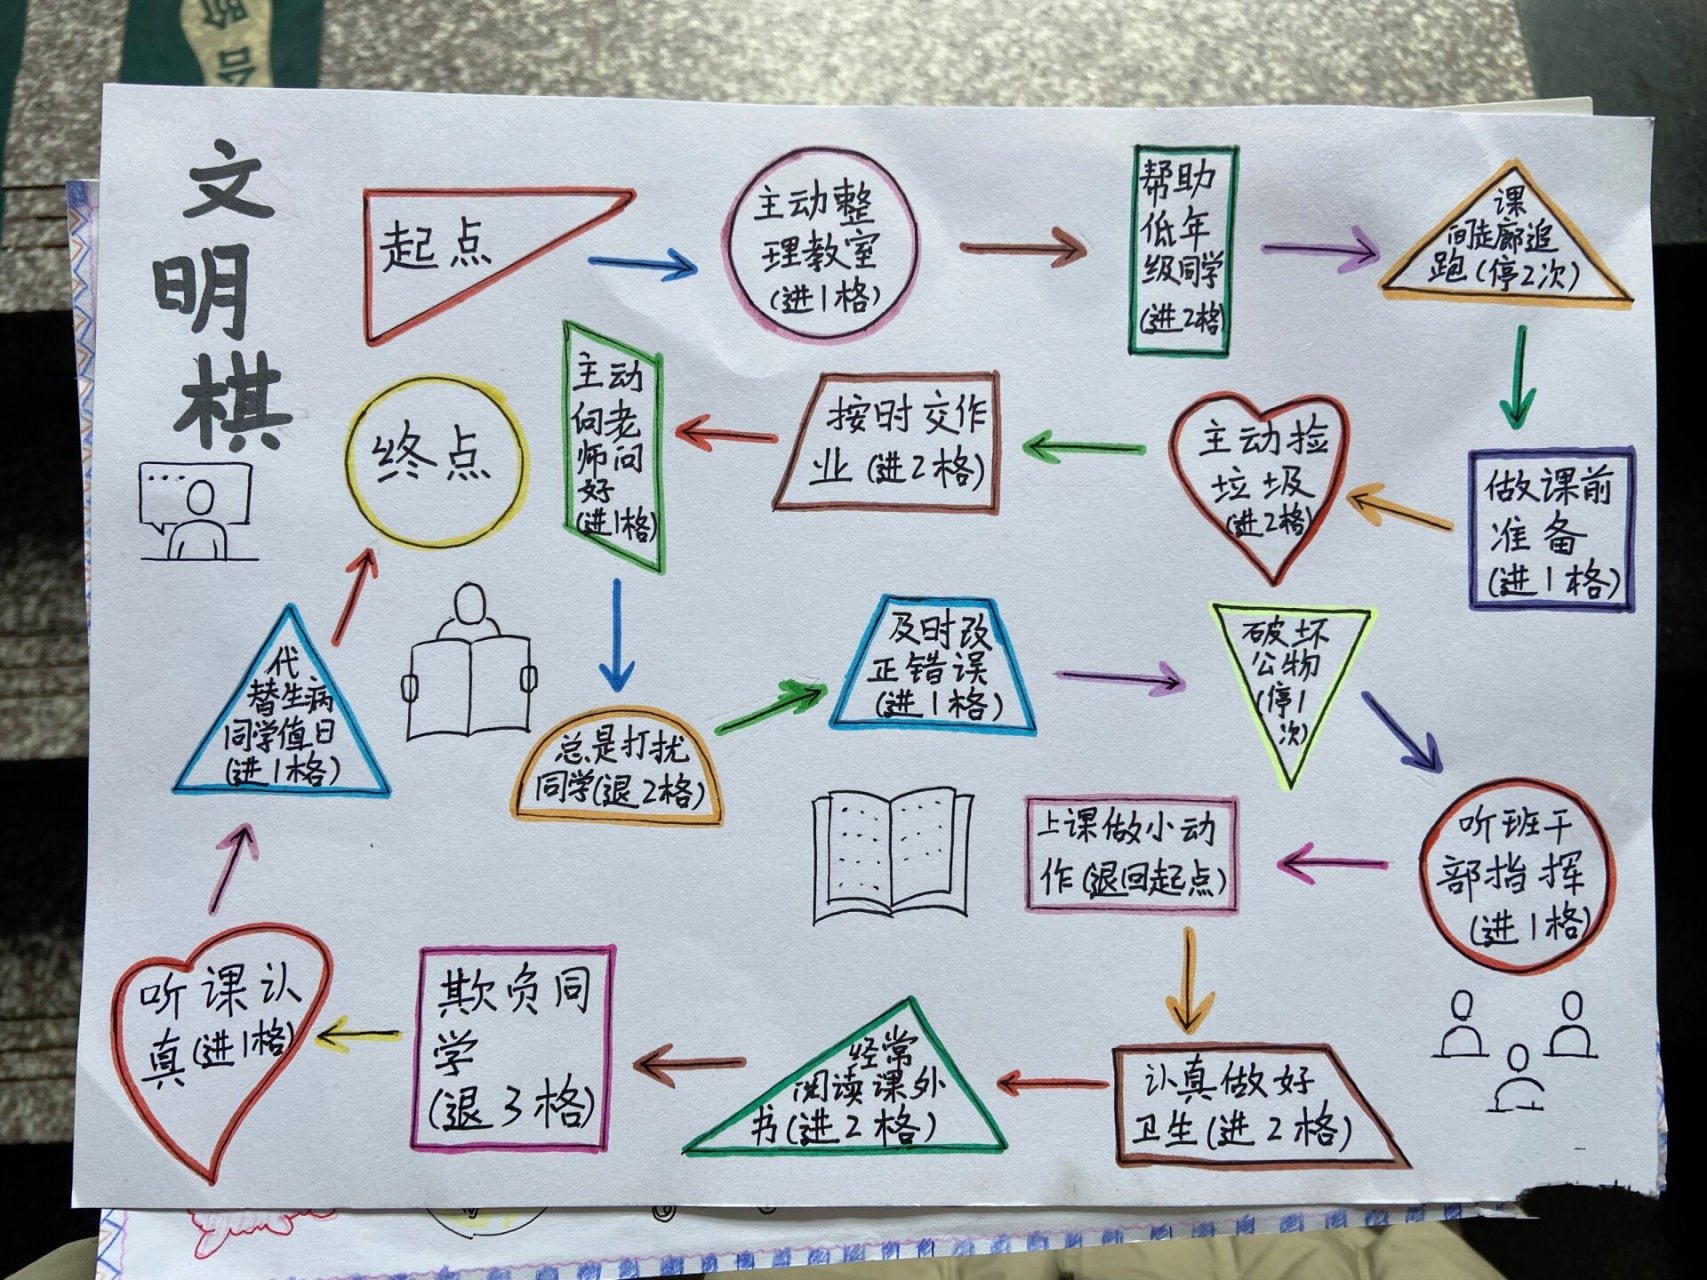 文
明
棋
起点
主动整
理教室
(进1格)
帮助
低年
级同学
(进2格)
课
间走廊追
跑(停2次)
做课前
准备
(进1格)
主动捡
垃圾
(进2格)
按时交作
业(进2格)
主动
向老
师问
好
(进1格)
总是打扰
同学(退2格)
及时改
正错误
(进1格)
破坏
公物
(停1
次)
听班干
部指挥
(进1格)
上课做小动
作(退回起点)
认真做好
卫生(进2格)
经常
阅读课外
书(进2格)
欺负同
学
(退3格)
听课认
真(进1格)
代
替生病
同学值日
(进1格)
终点